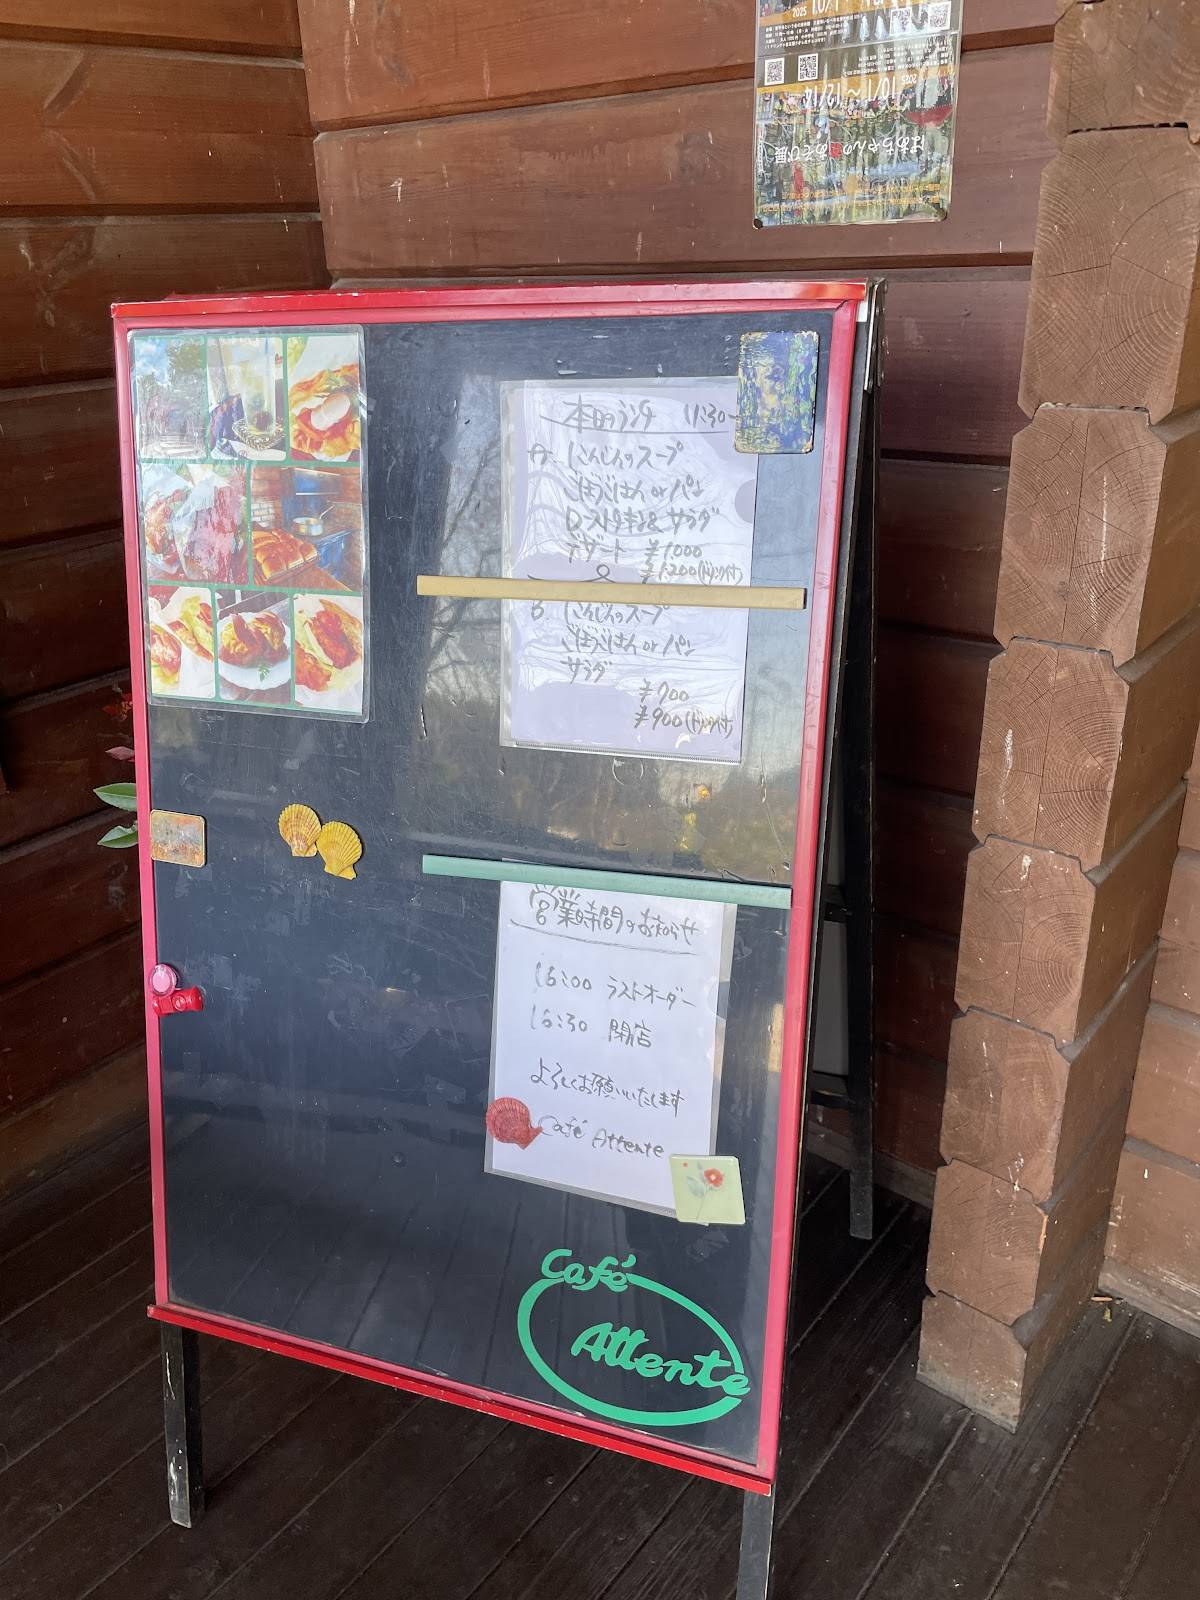 2025 10/1
2025 10/1～12/14
ばあちゃんの あそび展
本日のランチ 11:30～
A. にんじんのスープ
ごぼうごはん or パン
ローストチキン& サラダ
デザート ¥1000
¥1200(ドリンク付)
B. にんじんのスープ
ごぼうごはん or パン
サラダ
¥700
¥900(ドリンク付)
営業時間のお知らせ
16:00 ラストオーダー
16:30 閉店
よろしくお願いいたします
Café Attente
Café
Attente